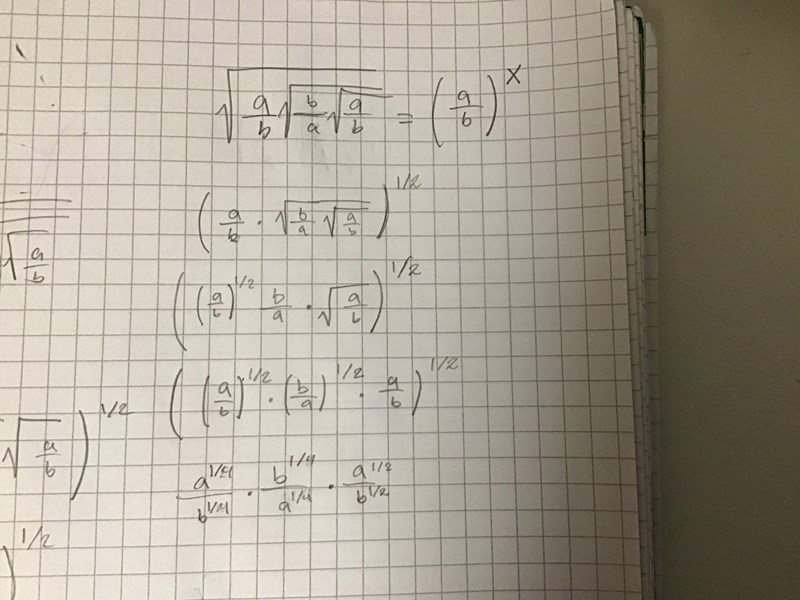 √(a/b √(b/a √(a/b))) = (a/b)^x
(a/b · √(b/a √(a/b)))^1/2
√(a/b)
((a/b)^1/2 b/a · √(a/b))^1/2
((a/b)^1/2 · (b/a)^1/2 · a/b)^1/2
√(a/b))^1/2
a^1/4/b^1/4 · b^1/4/a^1/4 · a^1/2/b^1/2
)^1/2